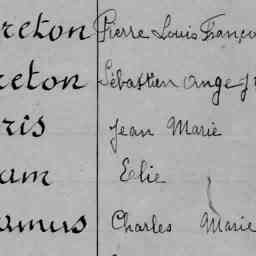 reton Pierre Louis Franço
reton Sébastien Ange
ris Jean Marie
am Elie
amus Charles Marie